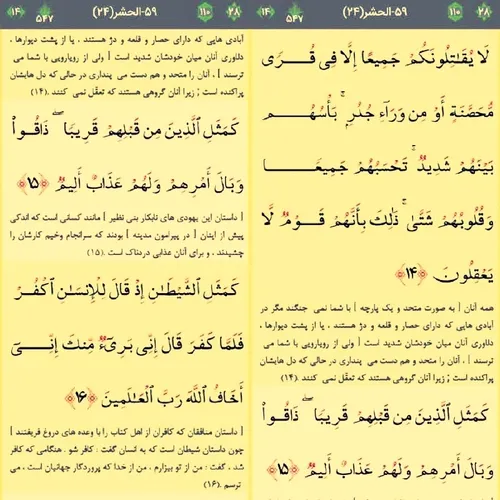 ۲۸
۱۱۰
۵۹-الحشر(۲۴)
۵۴۷
۱۴
لَا يُقَـٰتِلُونَكُمْ جَمِيعًا إِلَّا فِى قُـرًى
مُّحَصَّنَةٍ أَوْ مِن وَرَآءِ جُدُرٍۭ ۚ بَأْسُهُـم
بَيْنَهُمْ شَدِيدٌ ۚ تَحْسَبُهُمْ جَمِيعًـا
وَقُلُوبُهُمْ شَتَّىٰ ۚ ذَٰلِكَ بِأَنَّهُمْ قَـوْمٌ لَّا
يَعْقِلُونَ ﴿۱۴﴾
همه آنان [ به صورت متحد و یک پارچه ] با شما نمی جنگند مگر در
آبادی هایی که دارای حصار و قلعه و دژ هستند ، یا از پشت دیوارها ،
دلاوری آنان میان خودشان شدید است [ ولی از رویارویی با شما می
ترسند ] ، آنان را متحد و هم دست می پنداری در حالی که دل هایشان
پراکنده است ; زیرا آنان گروهی هستند که تعقّل نمی کنند .(۱۴)
كَمَثَلِ ٱلَّذِينَ مِن قَبْلِهِمْ قَرِيبًا ۖ ذَاقُـوا۟
وَبَالَ أَمْرِهِمْ وَلَهُمْ عَذَابٌ أَلِيمٌ ﴿۱۵﴾
۲۸
۱۱۰
۵۹-الحشر(۲۴)
۵۴۷
۱۴
آبادی هایی که دارای حصار و قلعه و دژ هستند ، یا از پشت دیوارها ،
دلاوری آنان میان خودشان شدید است [ ولی از رویارویی با شما می
ترسند ] ، آنان را متحد و هم دست می پنداری در حالی که دل هایشان
پراکنده است ; زیرا آنان گروهی هستند که تعقّل نمی کنند .(۱۴)
كَمَثَلِ ٱلَّذِينَ مِن قَبْلِهِمْ قَرِيبًا ۖ ذَاقُـوا۟
وَبَالَ أَمْرِهِمْ وَلَهُمْ عَذَابٌ أَلِيمٌ ﴿۱۵﴾
[ داستان این یهودی های نابکار بنی نظیر ] مانند کسانی است که اندکی
پیش از اینان [ در پیرامون مدینه ] بودند که سرانجام وخیم کارشان را
چشیدند ، و برای آنان عذابی دردناک است .(۱۵)
كَمَثَلِ ٱلشَّيْطَـٰنِ إِذْ قَالَ لِلْإِنسَـٰنِ ٱكْفُـرْ
فَلَمَّا كَفَرَ قَالَ إِنِّى بَرِىٓءٌ مِّنكَ إِنِّـىٓ
أَخَافُ ٱللَّهَ رَبَّ ٱلْعَـٰلَمِينَ ﴿۱۶﴾
[ داستان منافقان که کافران از اهل کتاب را با وعده های دروغ فریفتند ]
چون داستان شیطان است که به انسان گفت : کافر شو . هنگامی که کافر
شد ، گفت : من از تو بیزارم ، من از خدا که پروردگار جهانیان است ، می
ترسم .(۱۶)